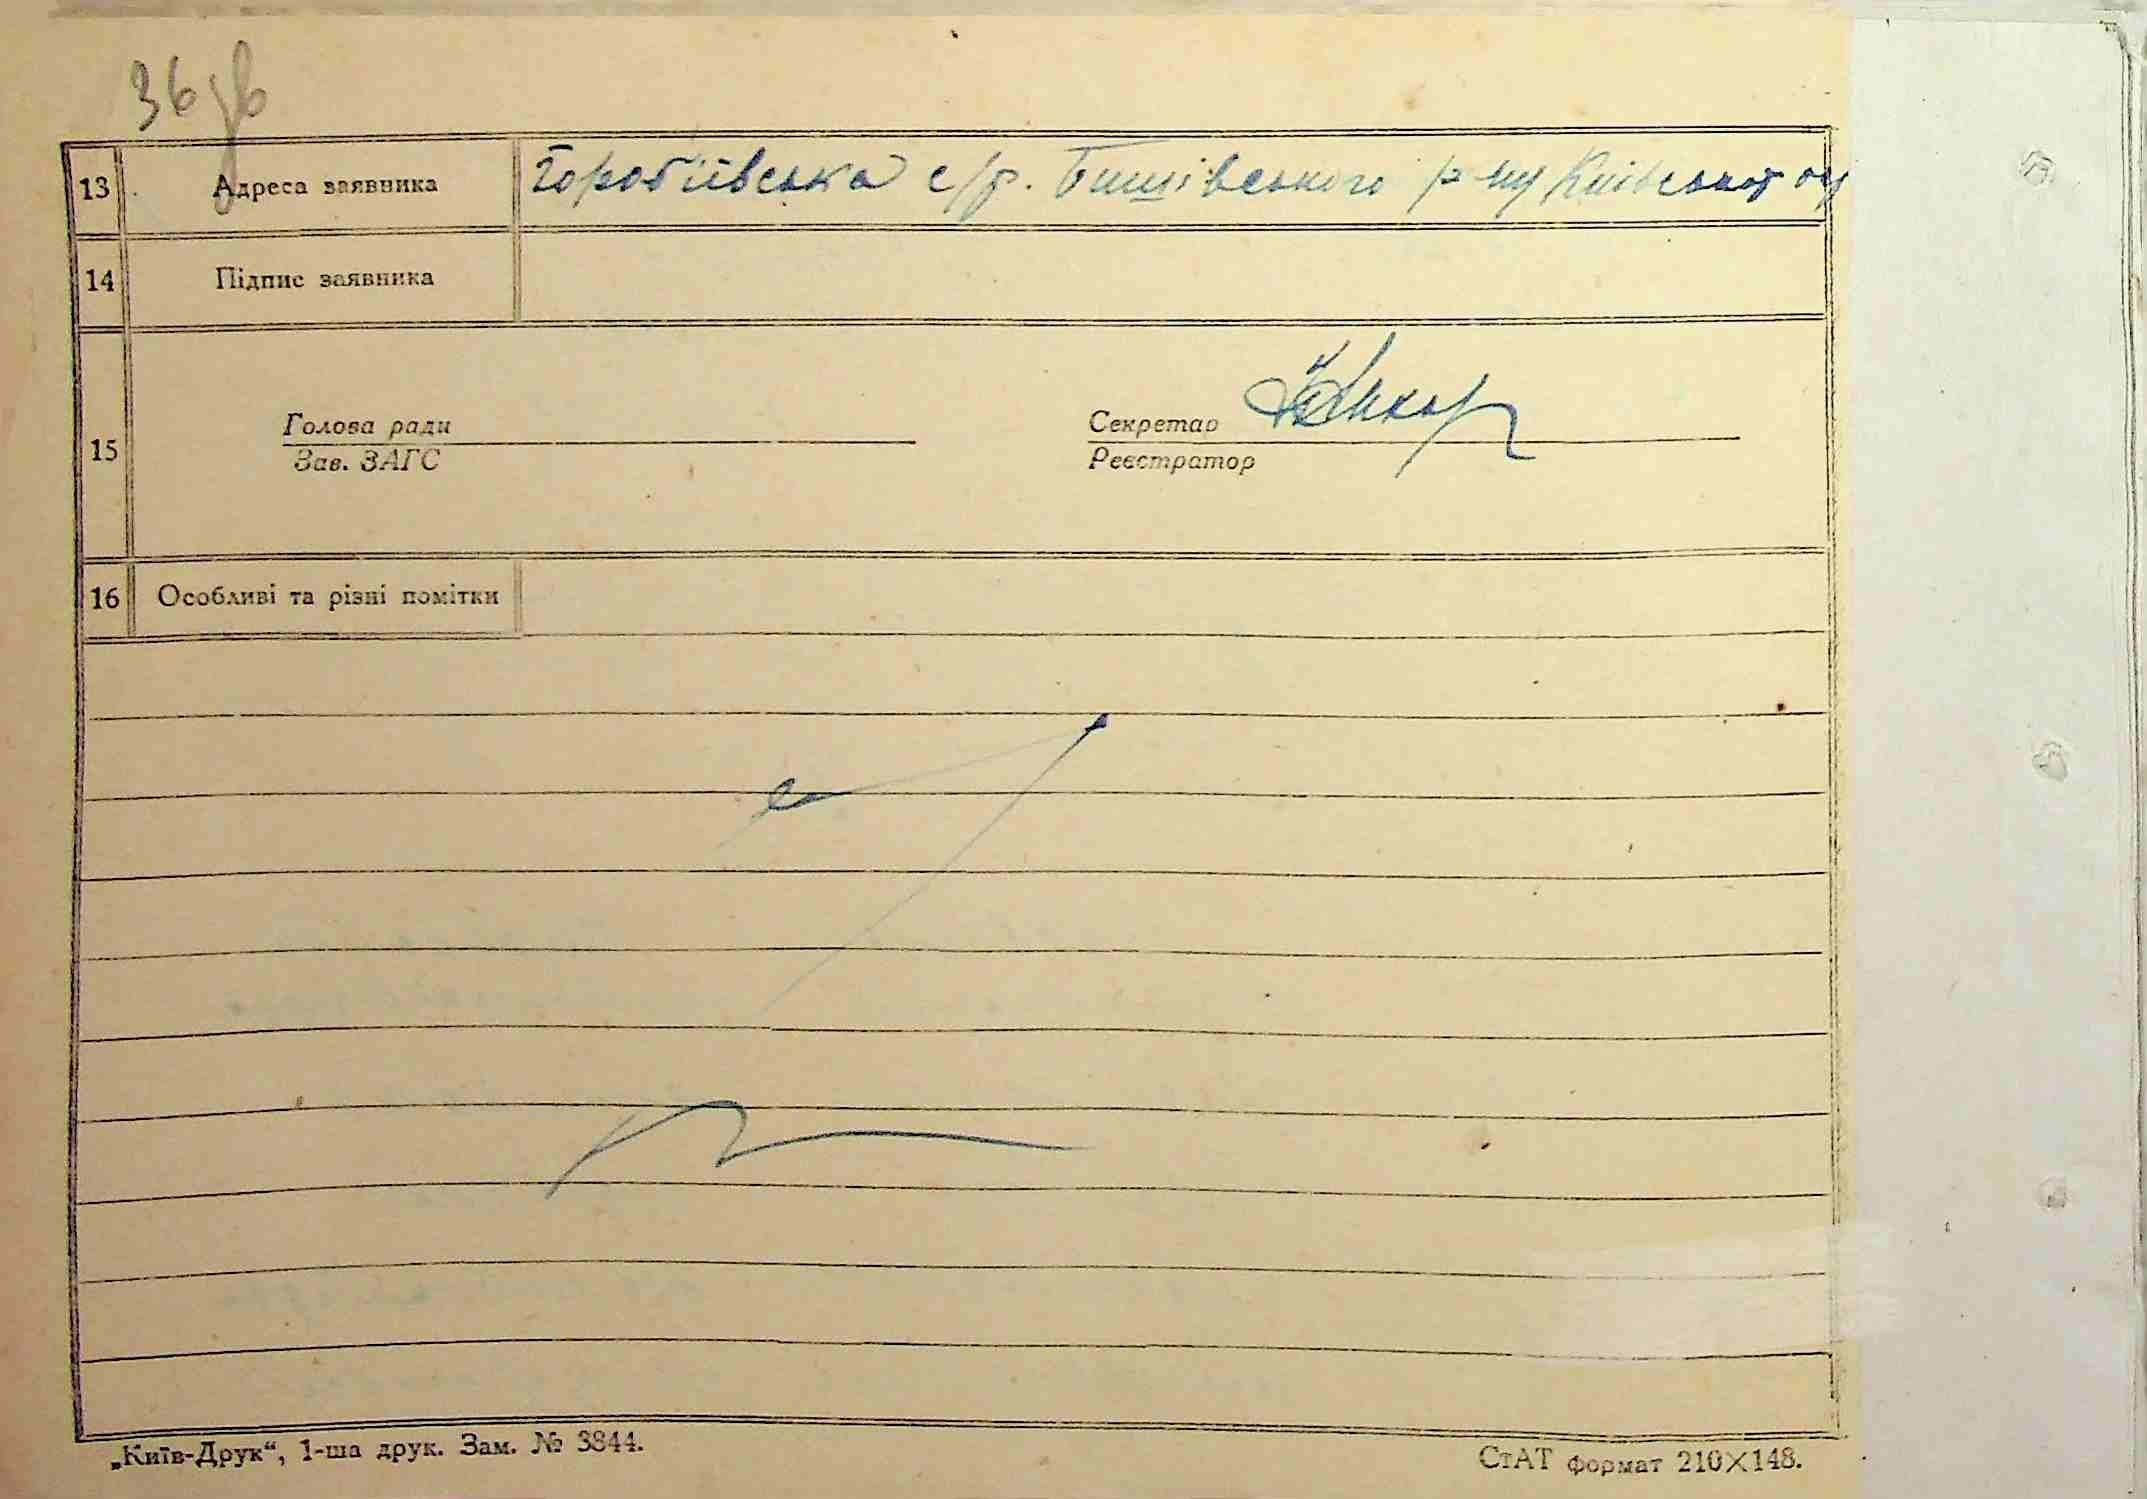 36 зв
13 Адреса заявника Горобіївська с/р. Бишівського р-ну Київської
14 Підпис заявника
Голова ради Секретар
15
Зав. ЗАГС Реєстратор
16 Особливі та різні помітки
„Київ-Друк“, 1-ша друк. Зам. № 3844. СтАТ формат 210×148.